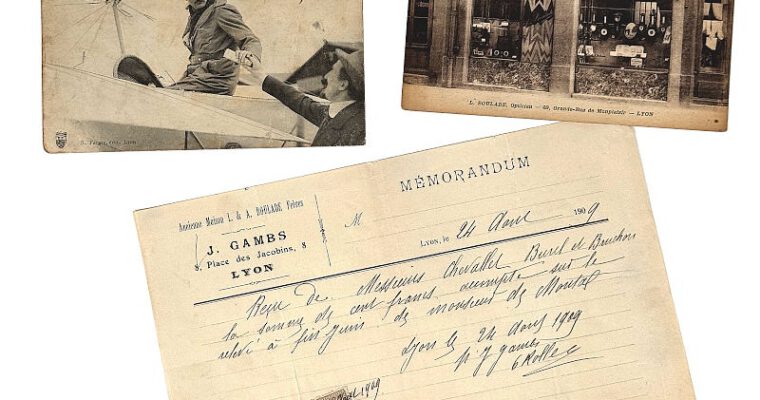 B. Farges, édit., Lyon
L. BOULADE, Opticien — 69, Grande-Rue de Monplaisir — LYON
MÉMORANDUM
Ancienne Maison L. & A. BOULADE Frères
J. GAMBS
8, Place des Jacobins, 8
LYON
M
Lyon, le 24 Avril 1909
Reçu de Messieurs Chevallet Burel et
la somme de cent francs acompte sur le
relevé à fin Juin de monsieur de Montal
Lyon le 24 Avril 1909
p. J Gambs
1909